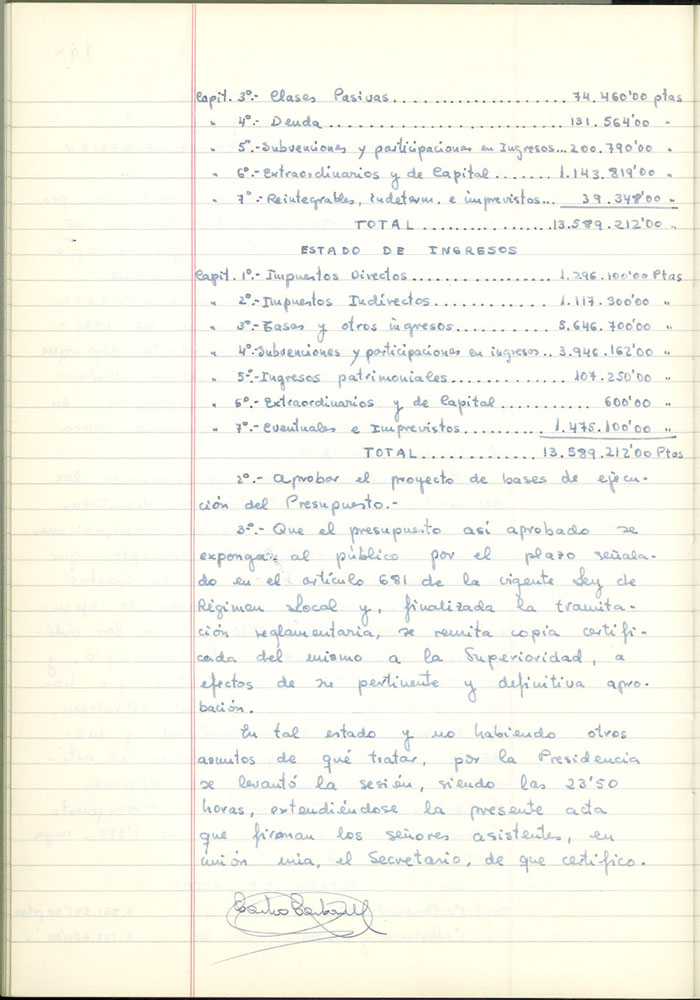 Capit. 3º.- Clases Pasivas...................... 74.460'00 ptas
" 4º.- Deuda .............................. 131.564'00 "
" 5º.-Subvenciones y participaciones en Ingresos...200.790'00 "
" 6º.-Extraordinarios y de Capital........1.143.819'00 "
" 7º.-Reintegrables, indeterm. e imprevistos... 39.348'00 "
TOTAL ...............13.589.212'00 "
ESTADO DE INGRESOS
Capit. 1º.- Impuestos Directos..................1.296.100'00 Ptas
" 2º.-Impuestos Indirectos................1.117.300'00 "
" 3º.-Tasas y otros ingresos.............5.646.700'00 "
" 4º.-Subvenciones y participaciones en ingresos..3.946.162'00 "
" 5º.-Ingresos patrimoniales............... 107.250'00 "
" 6º.-Extraordinarios y de Capital.......... 600'00 "
" 7º.- Eventuales e Imprevistos...........1.475.100'00 "
TOTAL...............13.589.212'00 Ptas
2º.- Aprobar el proyecto de bases de ejecu-
ción del Presupuesto.-
3º.- Que el presupuesto así aprobado se
exponga al público por el plazo señala-
do en el artículo 681 de la vigente Ley de
Régimen Local y, finalizada la tramita-
ción reglamentaria, se remita copia certifi-
cada del mismo a la Superioridad, a
efectos de su pertinente y definitiva apro-
bación.
En tal estado y no habiendo otros
asuntos de qué tratar, por la Presidencia
se levantó la sesión, siendo las 23'50
horas, extendiéndose la presente acta
que firman los señores asistentes, en
únión mía, el Secretario, de que certifico.